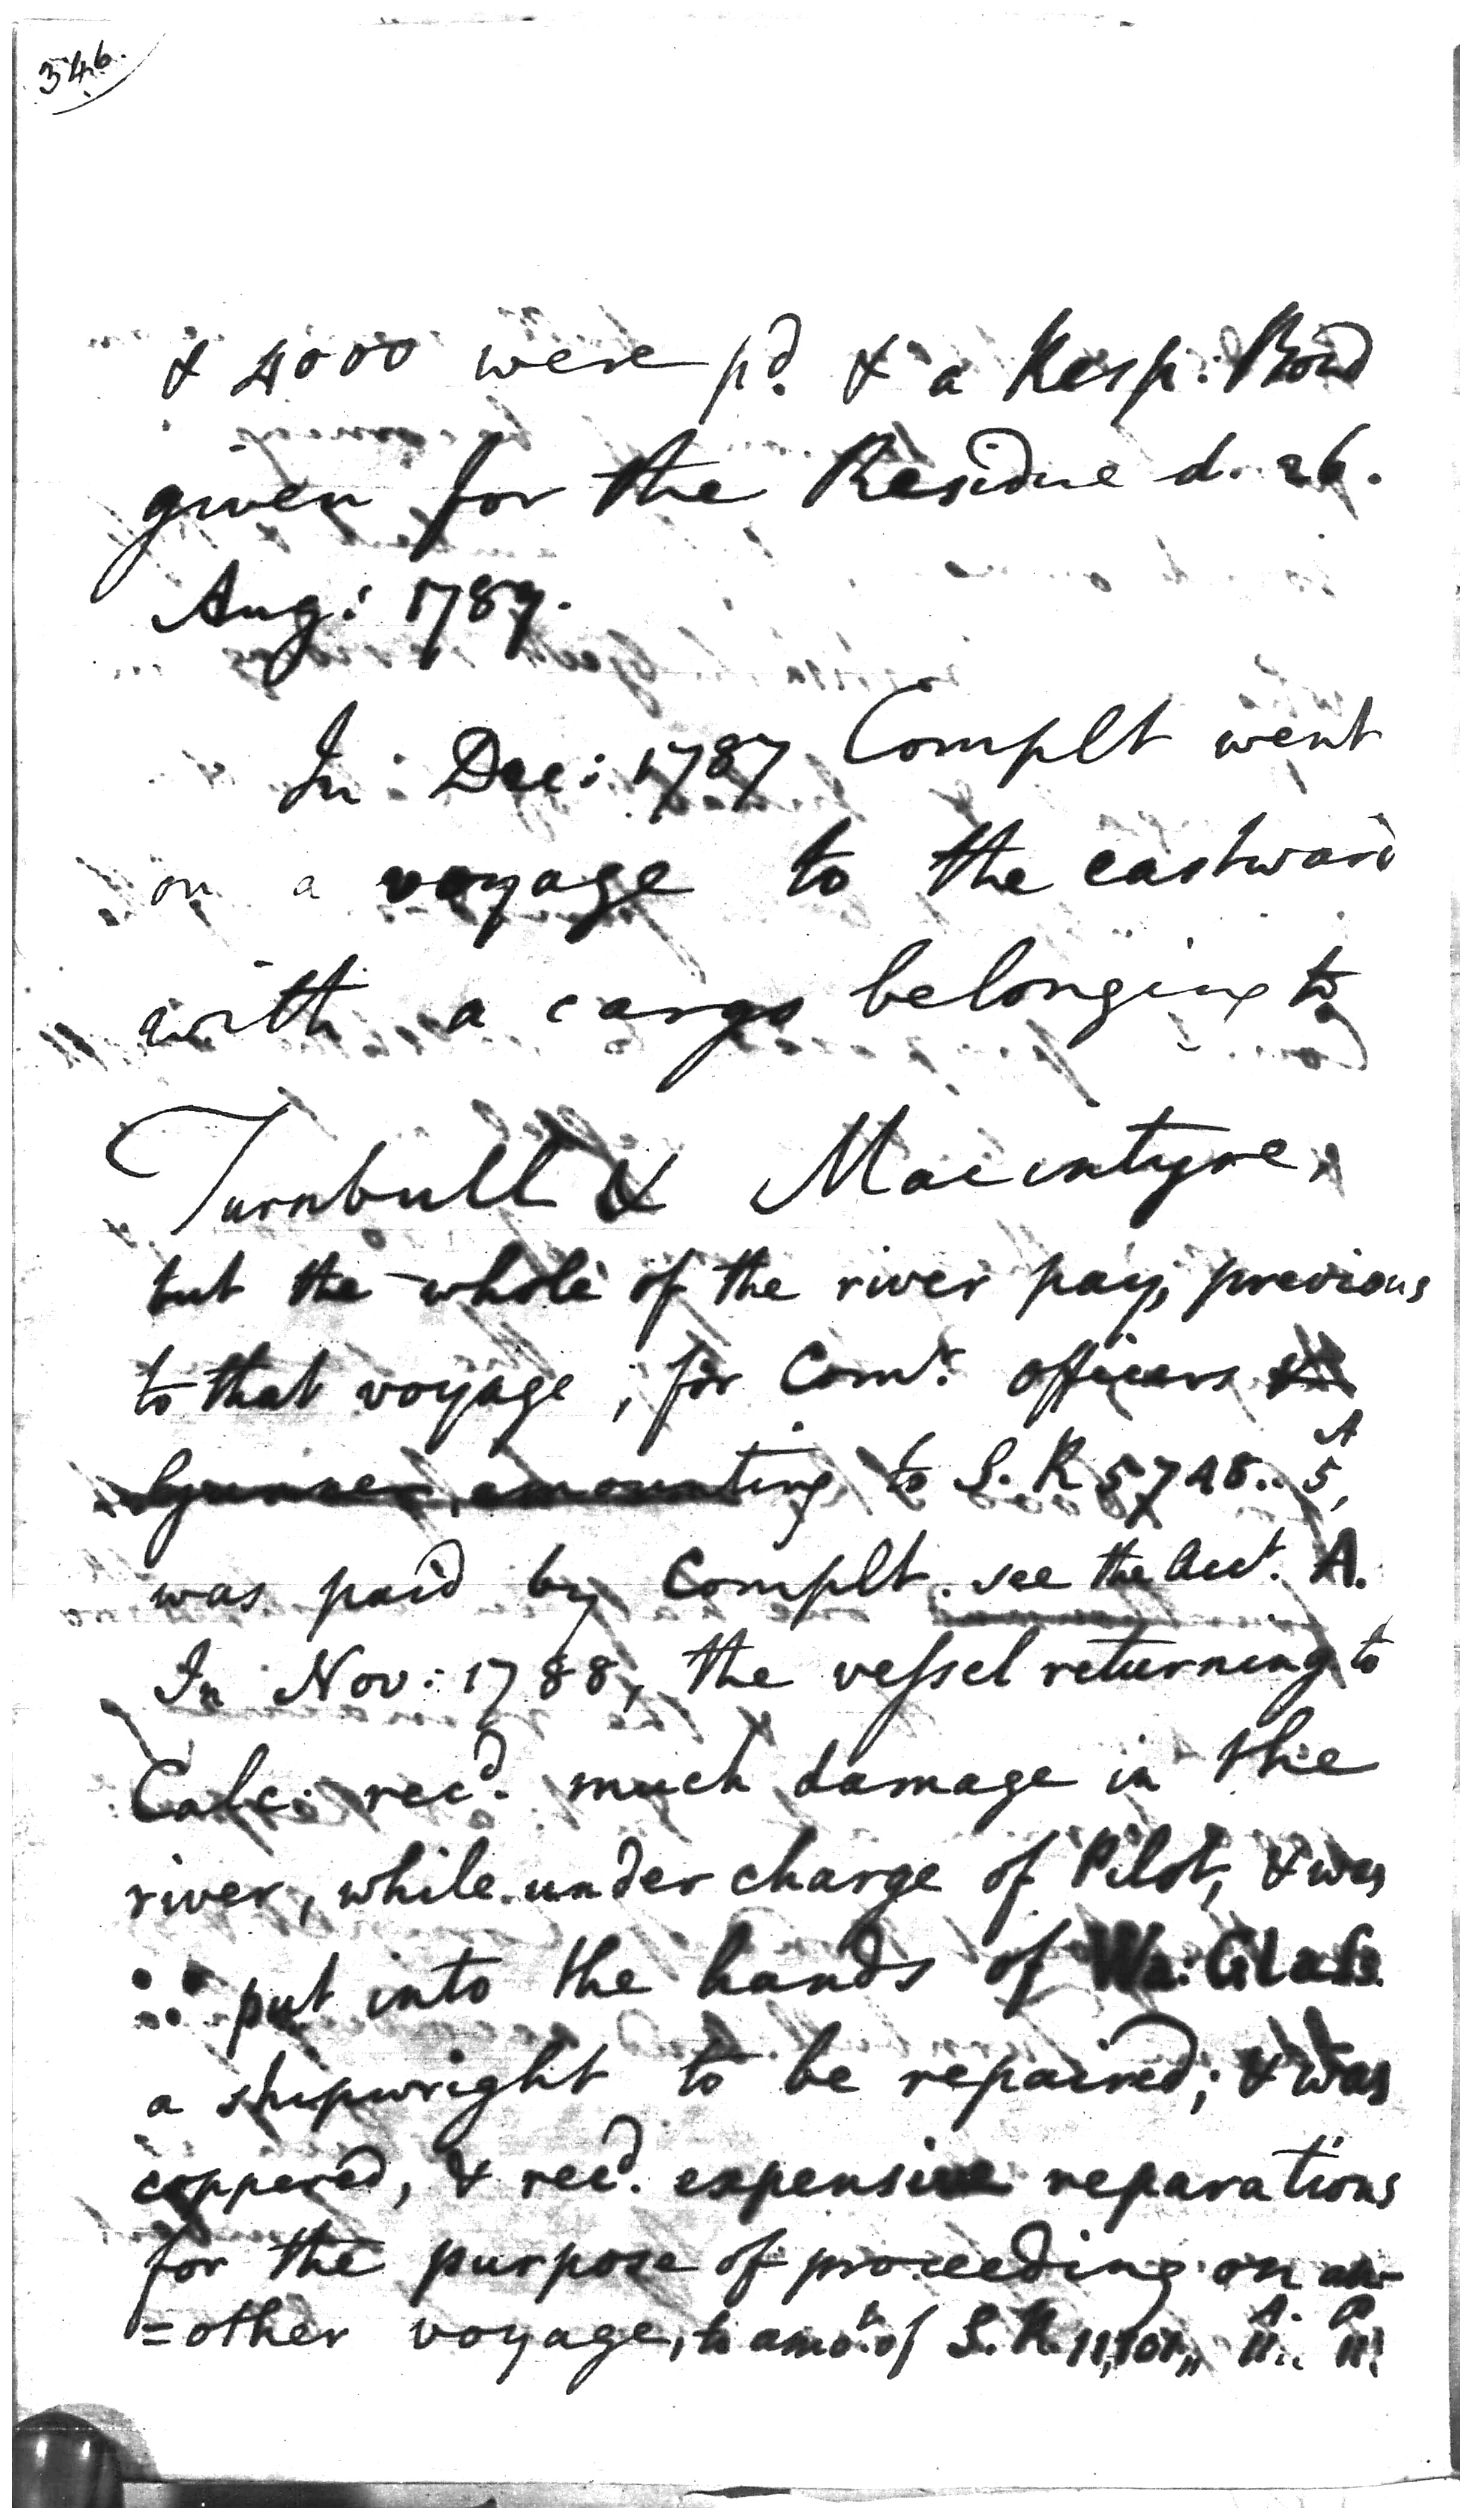 346.
& 4000 were pd. & a Resp: Bond
given for the Residue d. 26.
Aug: 1787.
In Dec: 1787 Complt went
on a voyage to the eastward
with a cargo belonging to
Turnbull & Macintyre,
but the whole of the river pay, previous
to that voyage, for Comr. officers
amounting to S. R 5748.. 5, A
was paid by Complt. see the Acct. A.
In Nov: 1788, the vessel returning to
Calc: recd. much damage in the
river, while under charge of Pilot, & was
∵ put into the hands of Wm: Glass
a shipwright to be repaired; & was
coppered, & recd. expensive reparations
for the purpose of proceeding on an-
=other voyage, to amot. of S. R. 11,101,, A. 11.. P. 11.